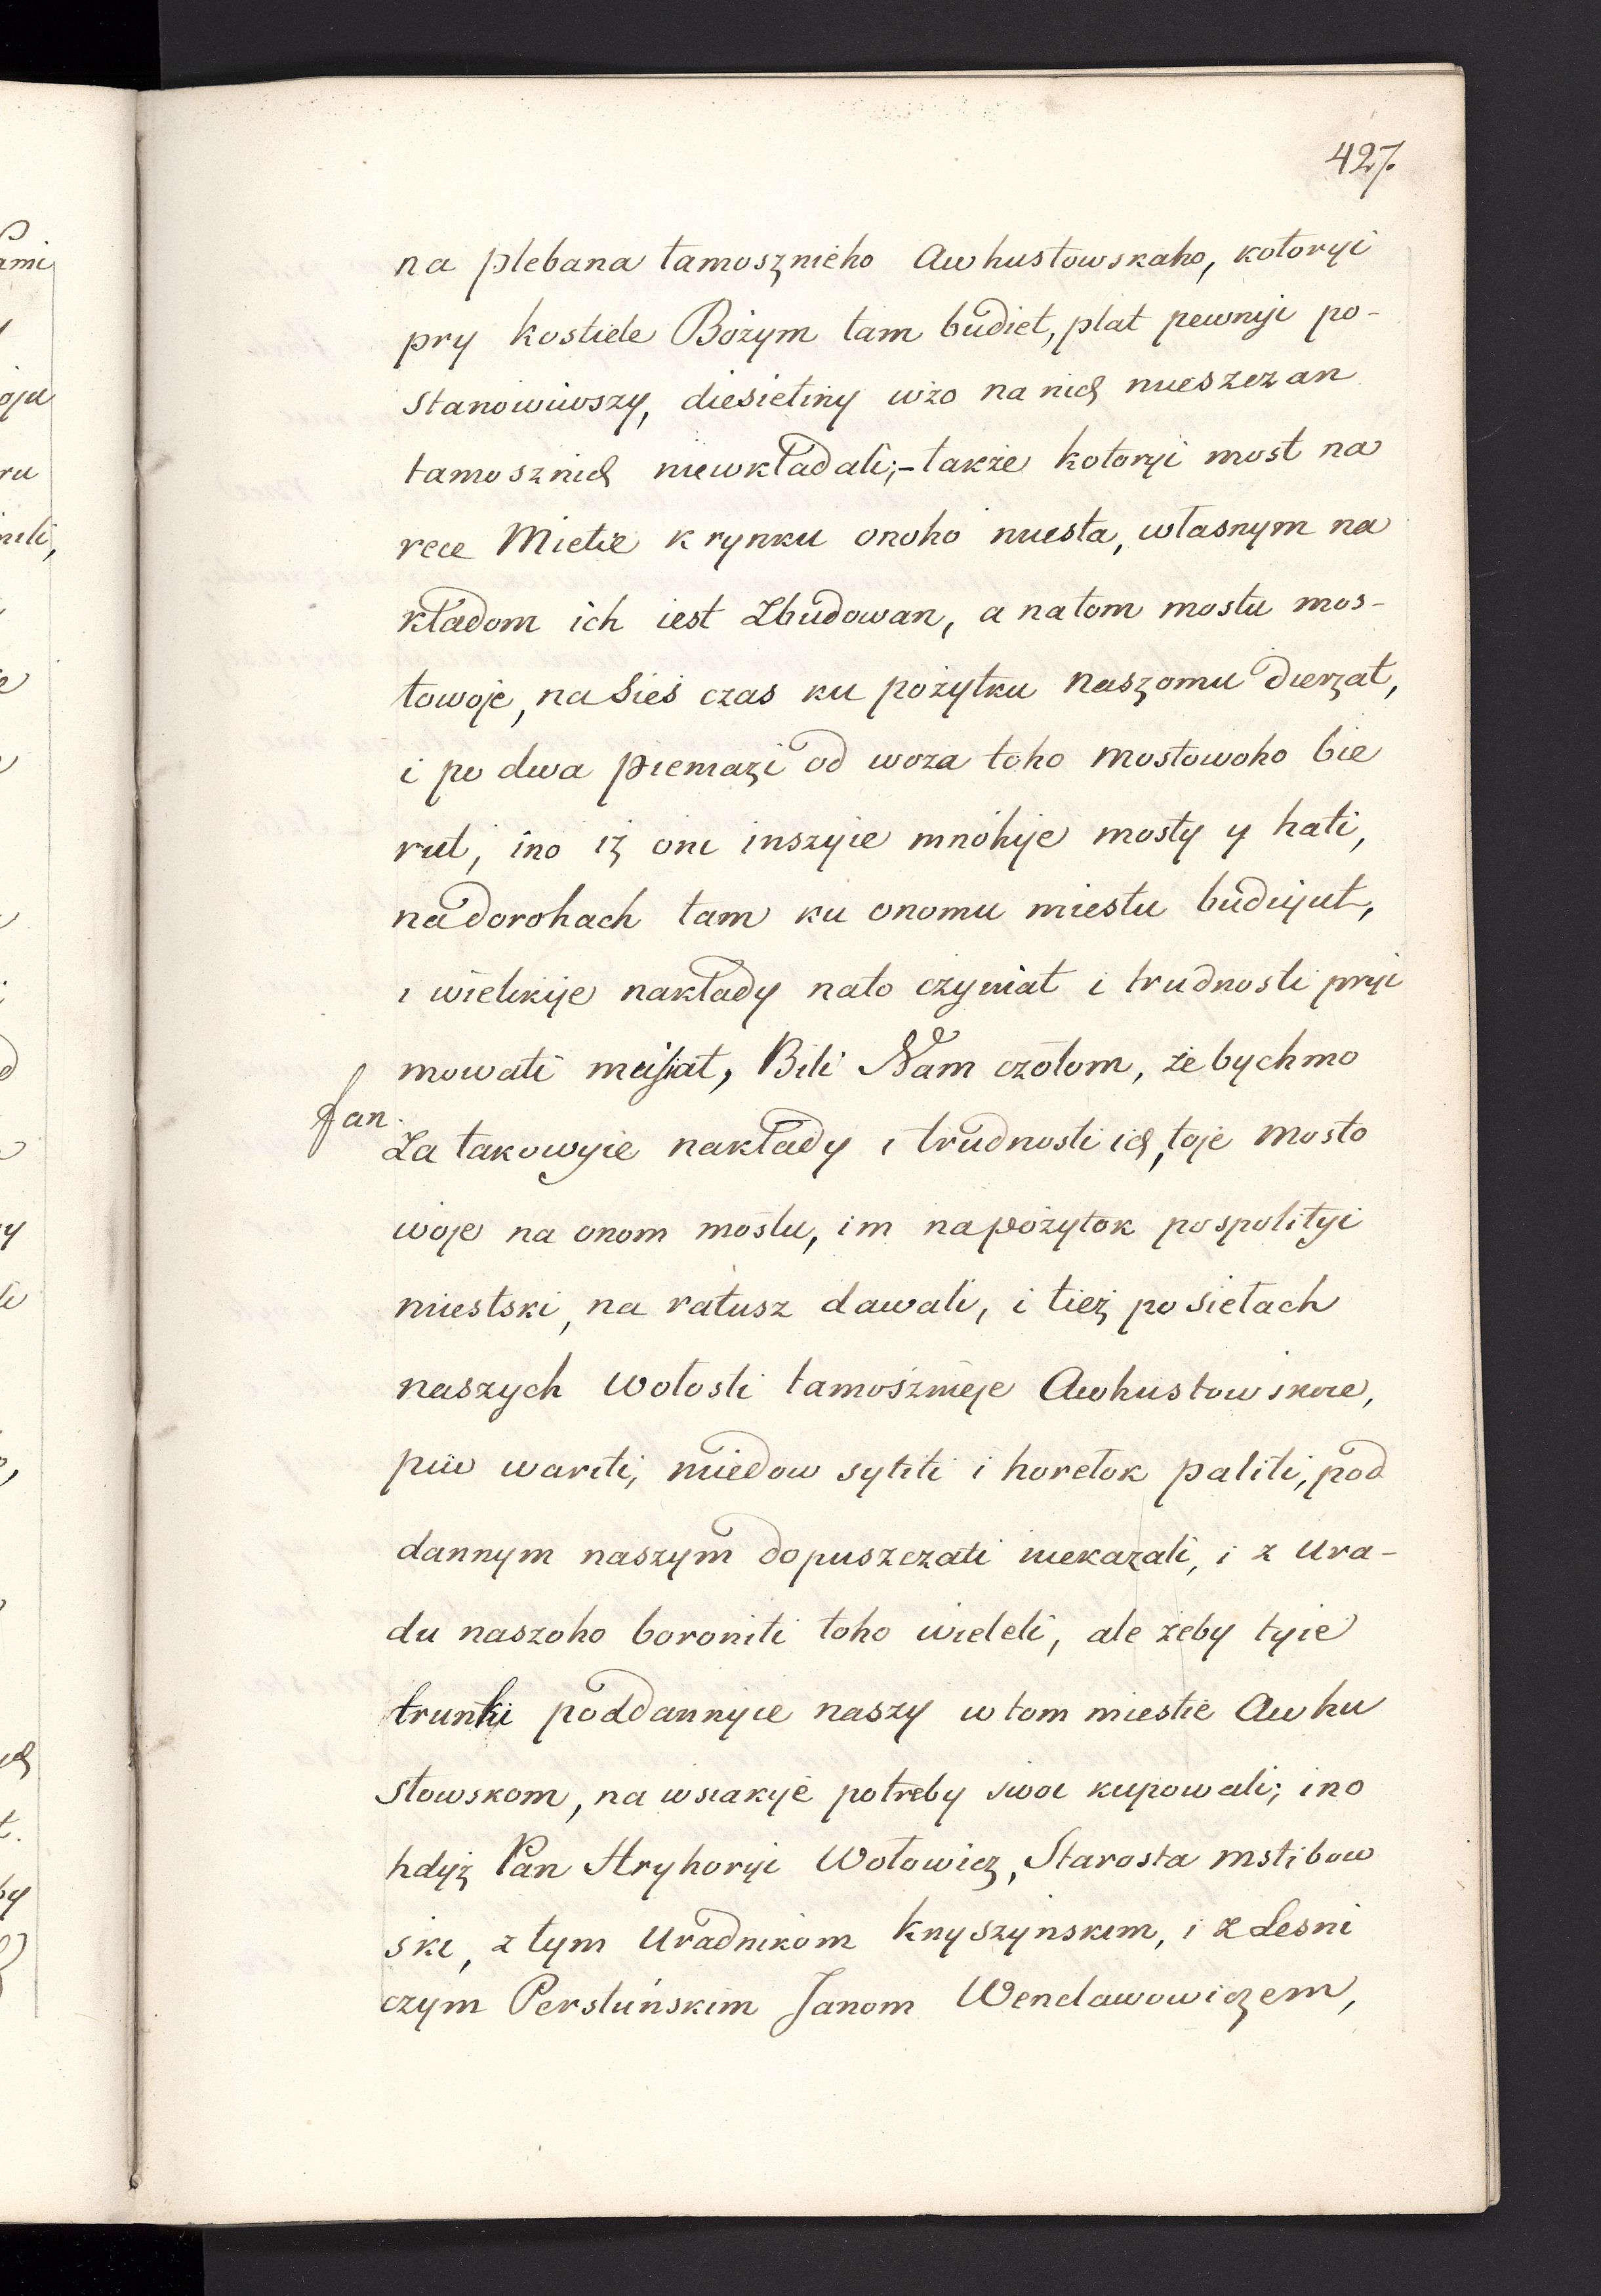 427.
na plebana tamosznieho Awhustowskaho, kotoryi
pry kostiele Bożym tam budiet, płat pewnyi po-
stanowiwszy, diesietiny użo na nich mieszczan
tamosznich niewkładali;- także kotoryi most na
rece Mietie k rynku onoho miesta, własnym na
kładom ich iest zbudowan, a natom mostu mos-
towoje, na sieś czas ku pożytku naszomu dierżat,
i po dwa pieniazi od woza toho mostowoho bie
rut, ino iż oni inszyie mnohije mosty y hati,
na dorohach tam ku onomu miestu budujut,
i wielikije nakłady nato czyniat i trudnosti pryi
mowati musiat, Bili Nam czołom, że bychmo
fan.
Za takowyie nakłady i trudnosti ich, toje mosto
woje na onom mostu, im na pożytok pospolityi
miestski, na ratusz dawali, i tieź po siełach
naszych wołosti tamosznieje Awhustowskoe,
piw wariti, miedow sytiti i horełok paliti, pod
dannym naszym dopuszczati niekazali, i z ura-
du naszoho boroniti toho wieleli, ale żeby tyie
trunki poddannyie naszy w tom miestie Awhu
stowskom, na wsiakije potreby swoi kupowali; ino
hdyż Pan Hryhoryi Wołowicz, Starosta mstibow
ski, z tym Uradnikom Knyszynskim, i z Lesni
czym Perstuńskim Janom Wenclawowiczem,